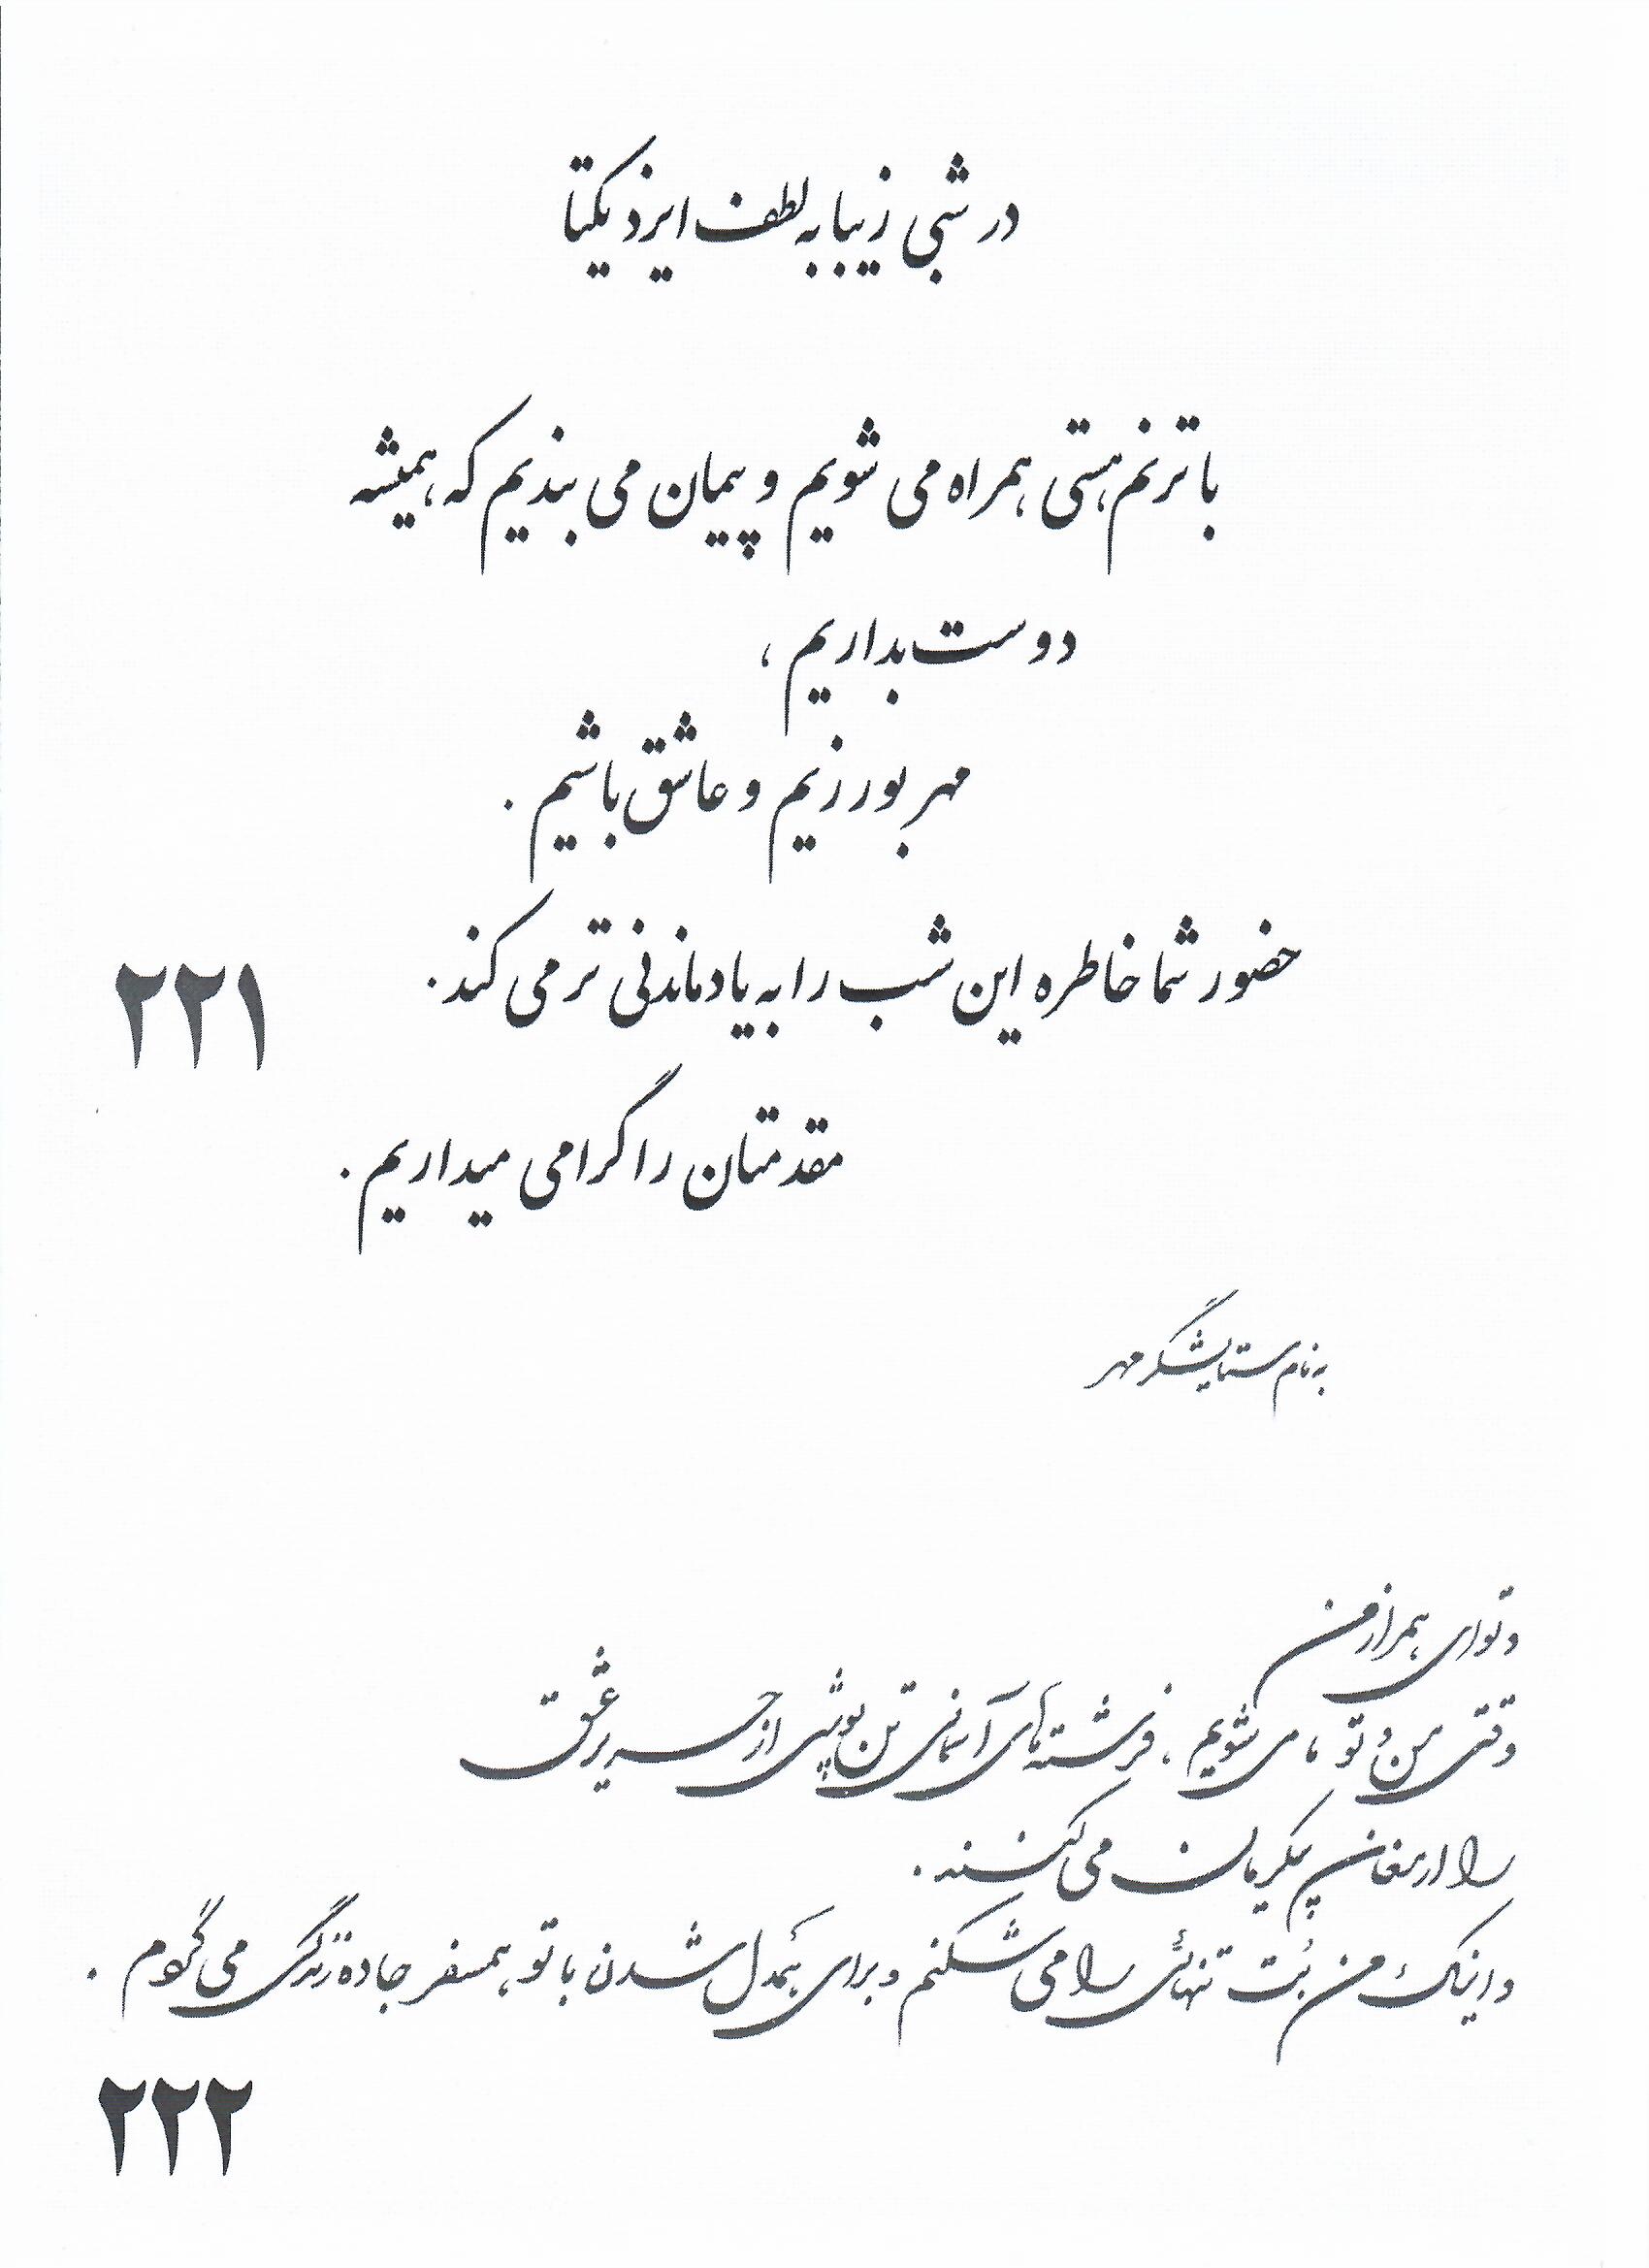 در شبی زیبا به لطف ایزد یکتا
با ترنم هستی همراه می شویم و پیمان می بندیم که همیشه
دوست بداریم ،
مهر بورزیم و عاشق باشیم .
حضور شما خاطره این شب را به یاد ماندنی تر می کند.
۲۲۱
مقدمتان را گرامی میداریم .
به نام ستایشگر مهر
و تو ای همراز من
وقتی من و تو ، ما می شویم ، فرشته های آسمانی تن پوشی از حریر عشق
را ارمغان پیکرمان می کنند .
و اینک من بُت تنهائی را می شکنم و برای همدل شدن با تو همسفر جاده زندگی می گردم .
۲۲۲